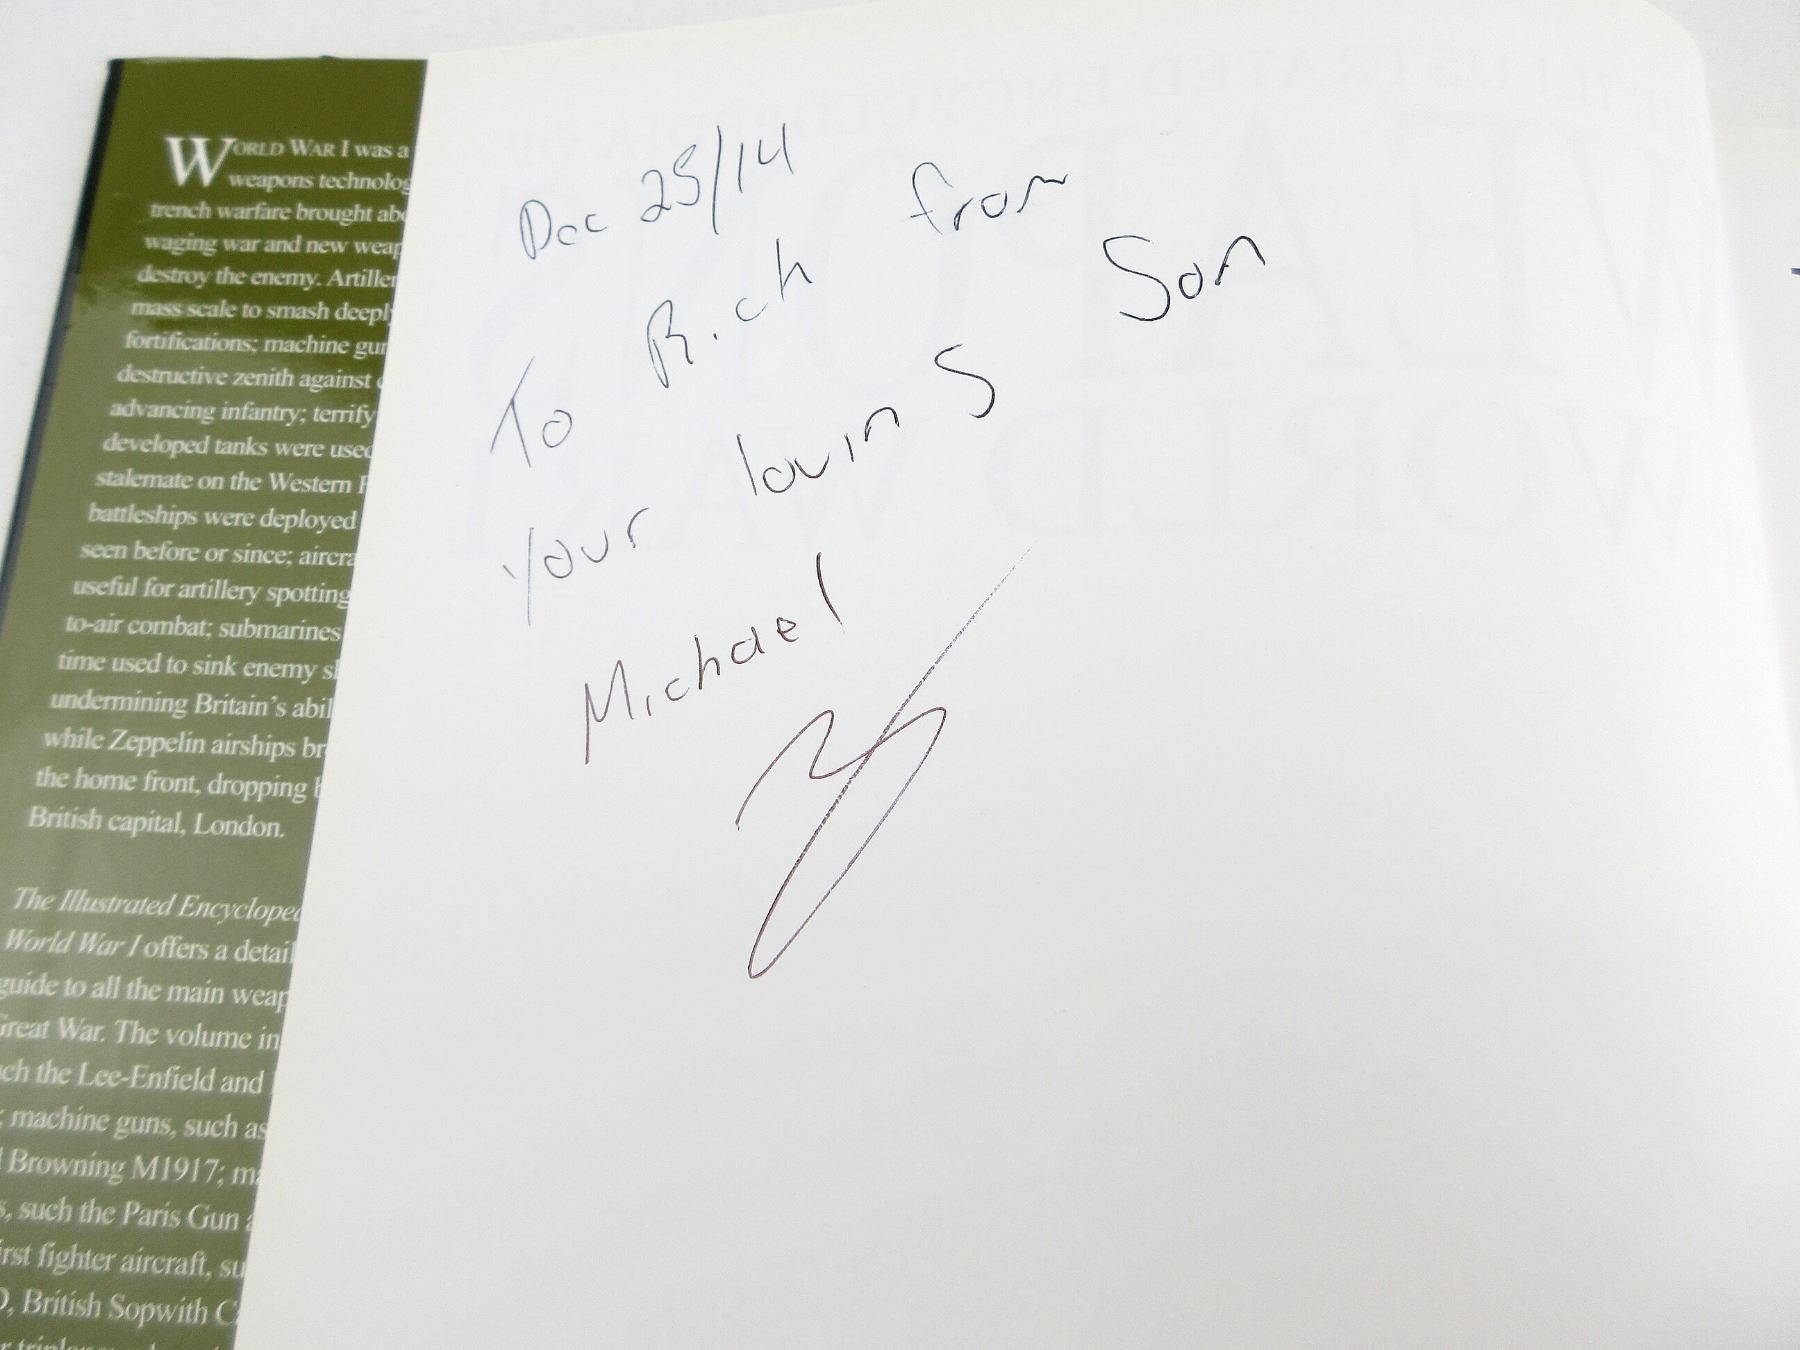 WORLD WAR I was a
weapons technolog
trench warfare brought abo
waging war and new weap
destroy the enemy. Artiller
mass scale to smash deepl
fortifications; machine gun
destructive zenith against
advancing infantry; terrify
developed tanks were used
stalemate on the Western F
battleships were deployed
seen before or since; aircra
useful for artillery spotting
to-air combat; submarines
time used to sink enemy sh
undermining Britain's abil
while Zeppelin airships br
the home front, dropping b
British capital, London.
The Illustrated Encycloped
World War I offers a detail
guide to all the main weap
Great War. The volume in
ch the Lee-Enfield and
; machine guns, such as
Browning M1917; ma
s, such the Paris Gun a
irst fighter aircraft, su
, British Sopwith Ca
Dec 25/14
To Rich from
your loving Son
Michael
ILLUSTRATED ENCYCLOPEDIA OF
WEAPONS
WORLD WAR I